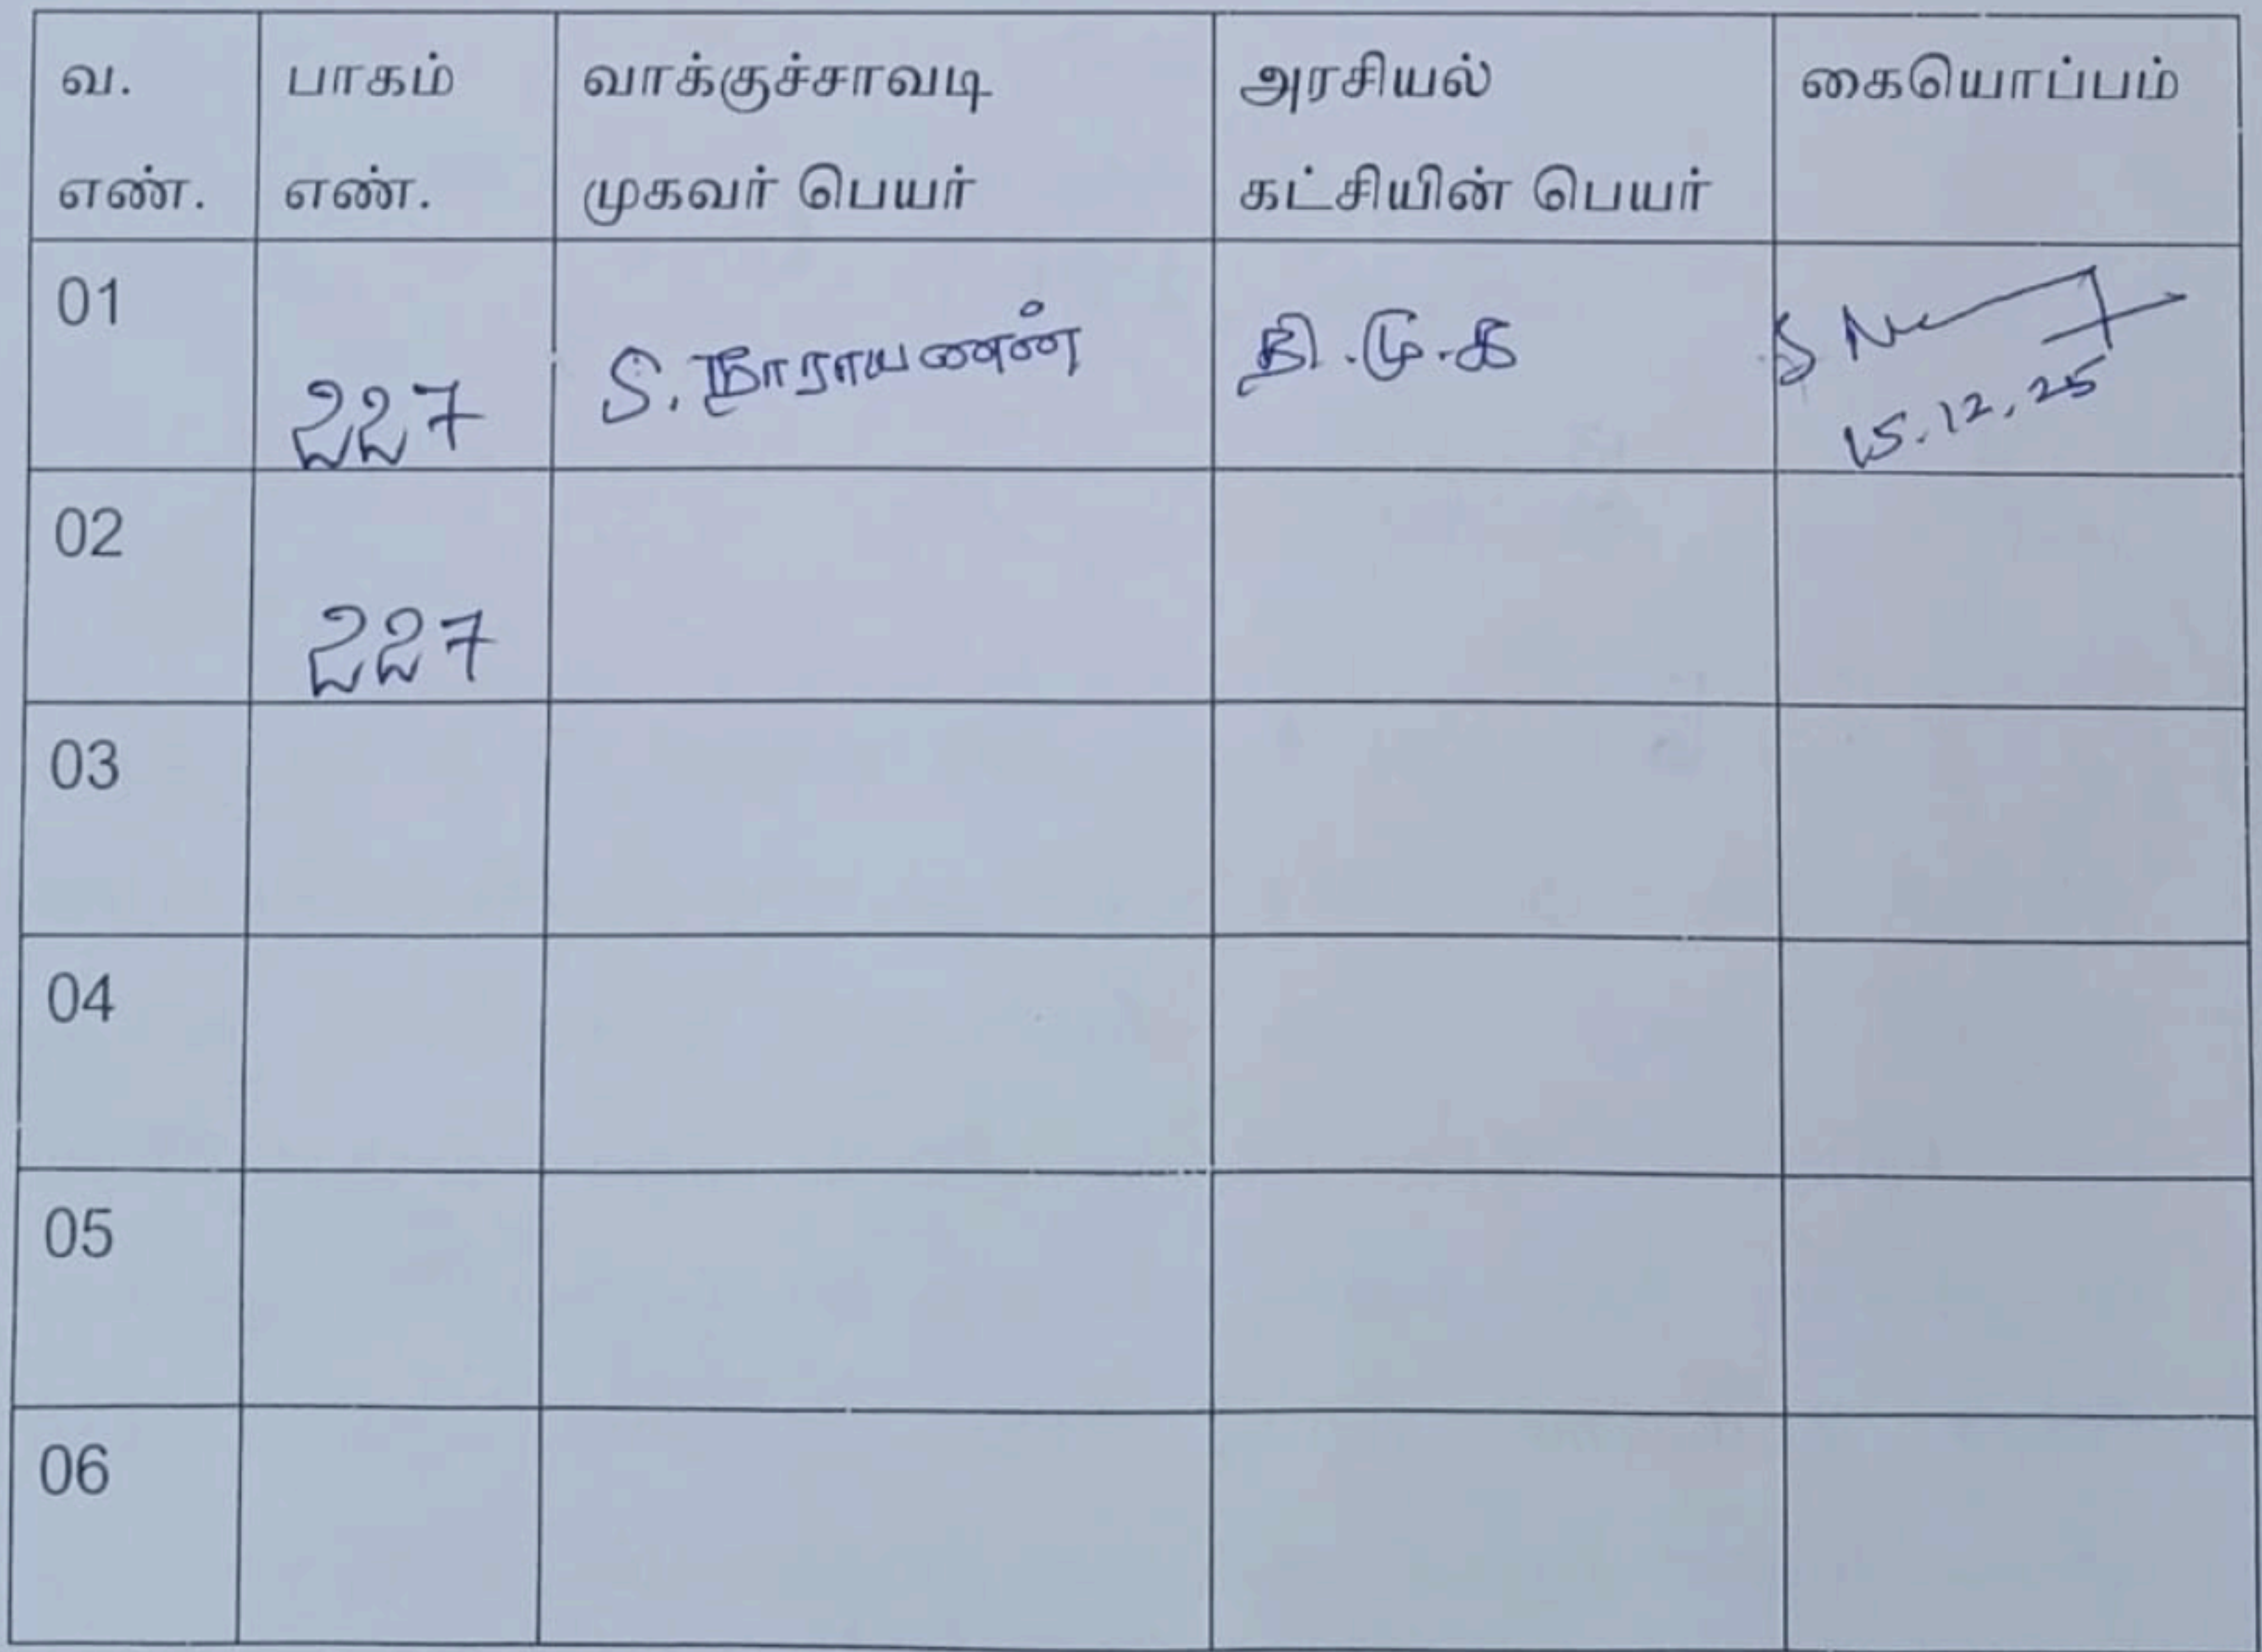 வ. எண்.	பாகம் எண்.	வாக்குச்சாவடி முகவர் பெயர்	அரசியல் கட்சியின் பெயர்	கையொப்பம்
01	227	S. நாராயணண்	தி.மு.க	S 15.12.25
02	227
03
04
05
06